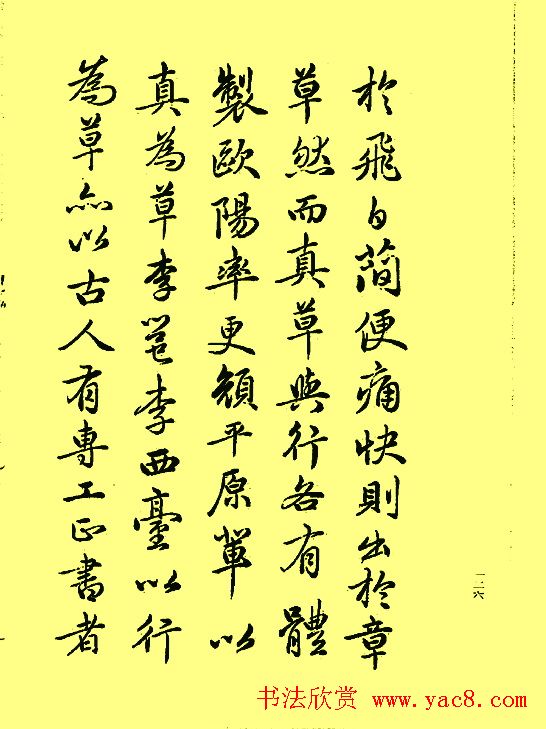 於飛白簡便痛快則出於章
草然而真草與行各有體
製歐陽率更顏平原輩以
真為草李邕李西臺以行
為草亦以古人有專工正書者
一二六
书法欣赏 www.yac8.com